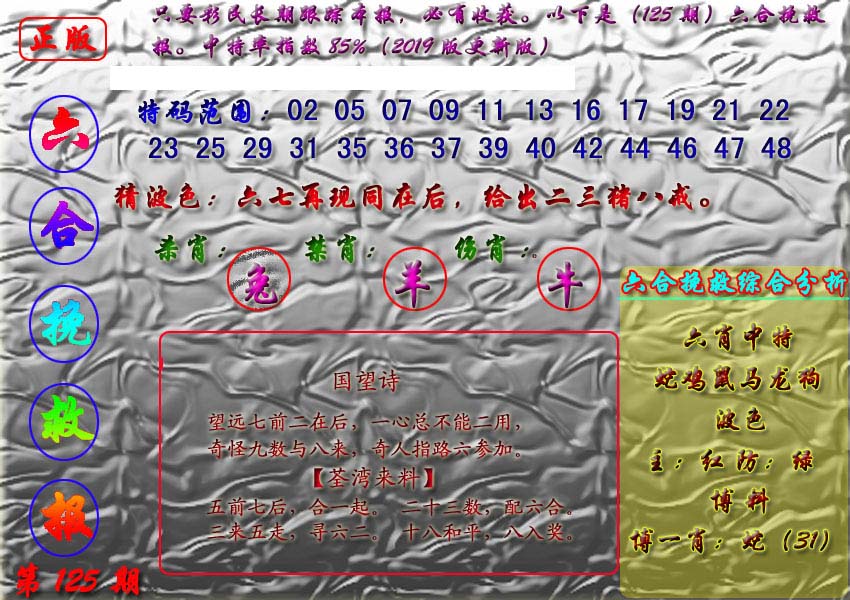 正版
只要彩民长期跟踪本报，必有收获。以下是（125期）六合挽救
报。中特率指数85%（2019版更新版）
六合挽救报
第125期
特码范围：02 05 07 09 11 13 16 17 19 21 22
23 25 29 31 35 36 37 39 40 42 44 46 47 48
猜波色：六七再现同在后，给出二三猪八戒。
杀肖：兔 禁肖：羊 伤肖：牛
国望诗
望远七前二在后，一心总不能二用，
奇怪九数与八来，奇人指路六参加。
【荃湾来料】
五前七后，合一起。 二十三数，配六合。
二来五走，寻六二。 十八和平，八入奖。
六合挽救综合分析
六肖中特
蛇鸡鼠马龙狗
波色
主：红防：绿
博料
博一肖：蛇（31）